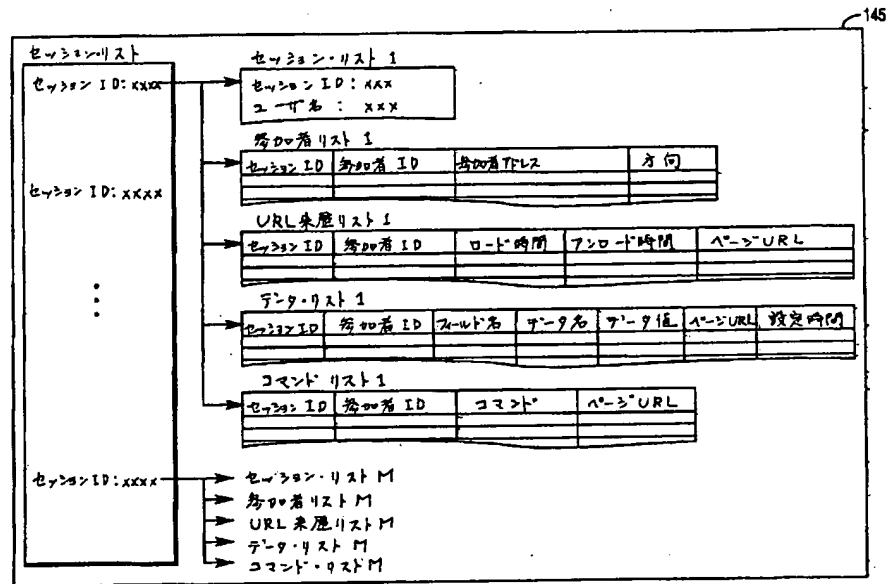 145
セッション・リスト
セッション ID: xxxx
セッション ID: xxxx
セッション ID: xxxx
セッション・リスト 1
セッション ID: xxx
ユーザ名: xxx
参加者リスト 1
セッション ID 参加者 ID 参加者アドレス 方向
URL来歴リスト 1
セッション ID 参加者 ID ロード時間 アンロード時間 ページURL
データ・リスト 1
セッション ID 参加者 ID フィールド名 データ名 データ値 ページURL 設定時間
コマンド リスト 1
セッション ID 参加者 ID コマンド ページURL
セッション・リスト M
参加者リスト M
URL 来歴リスト M
データ・リスト M
コマンド・リスト M